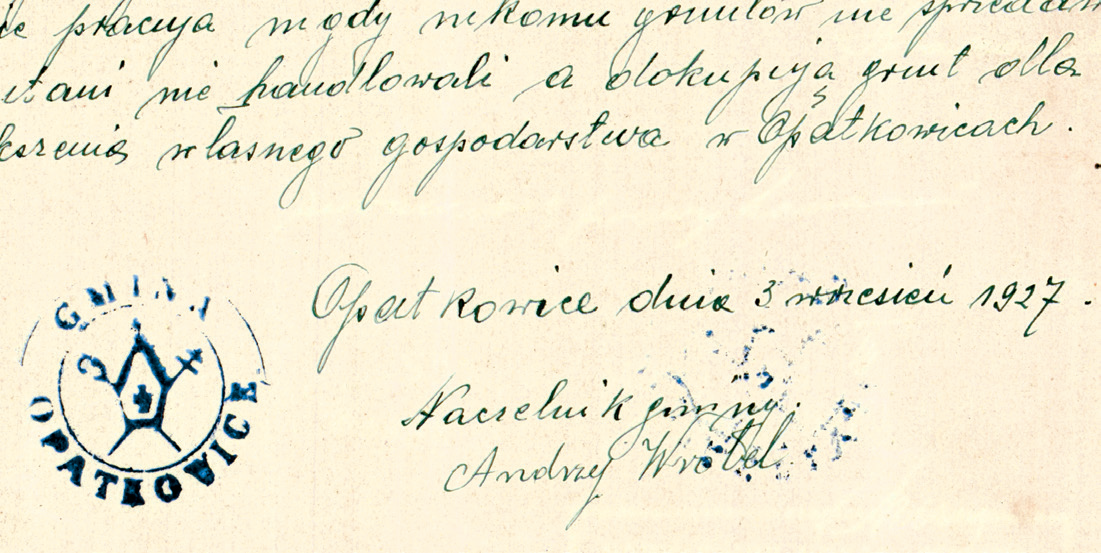 pracuja nigdy nikomu gruntów nie
nie handlowali a dokupują grunt dla
własnego gospodarstwa w Opatkowicach.
Opatkowice dnia 3 wrzesień 1927.
Naczelnik gminy.
Andrzy Wróbel
GMINA
OPATKOWICE